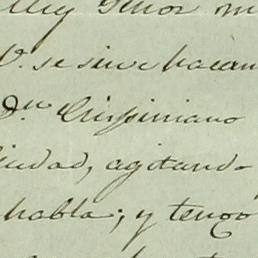 Muy Señor m
V. se sirve hacerm
Dn Crispiniano
iudad, agitando
habla; y tengo